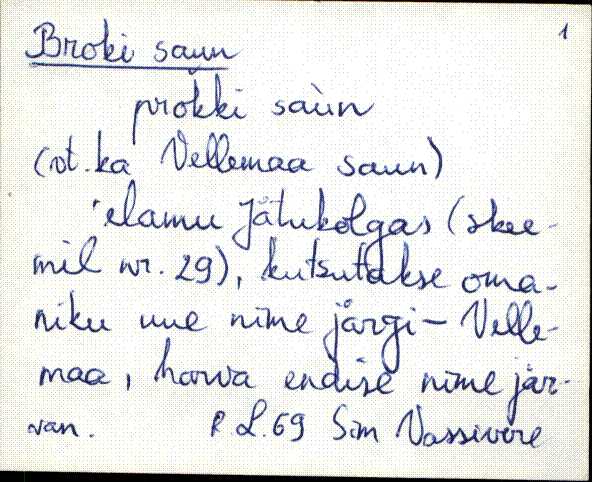 1
Broki saun
prokki saùn
(vt. ka Vellemaa saun)
elamu Jätukolgas (skee-
mil nr. 29), kutsutakse oma-
niku uue nime järgi – Velle-
maa, harva endise nime jär-
van. R. L. 69 Sim Vassivere